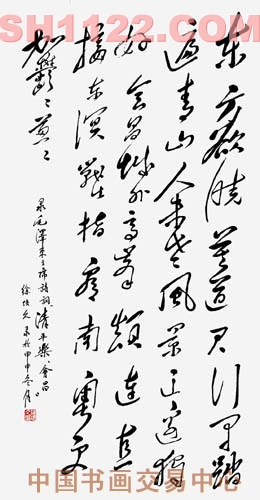 SH1122.COM
东方欲晓莫道君行早踏
遍青山人未老风景这边独
好会昌城外高峰颠连直
接东溟战士指看南粤更
加鬱〻葱〻
录毛泽东主席诗词清平乐会昌
徐 久 录於甲申冬月
中国书画交易中心